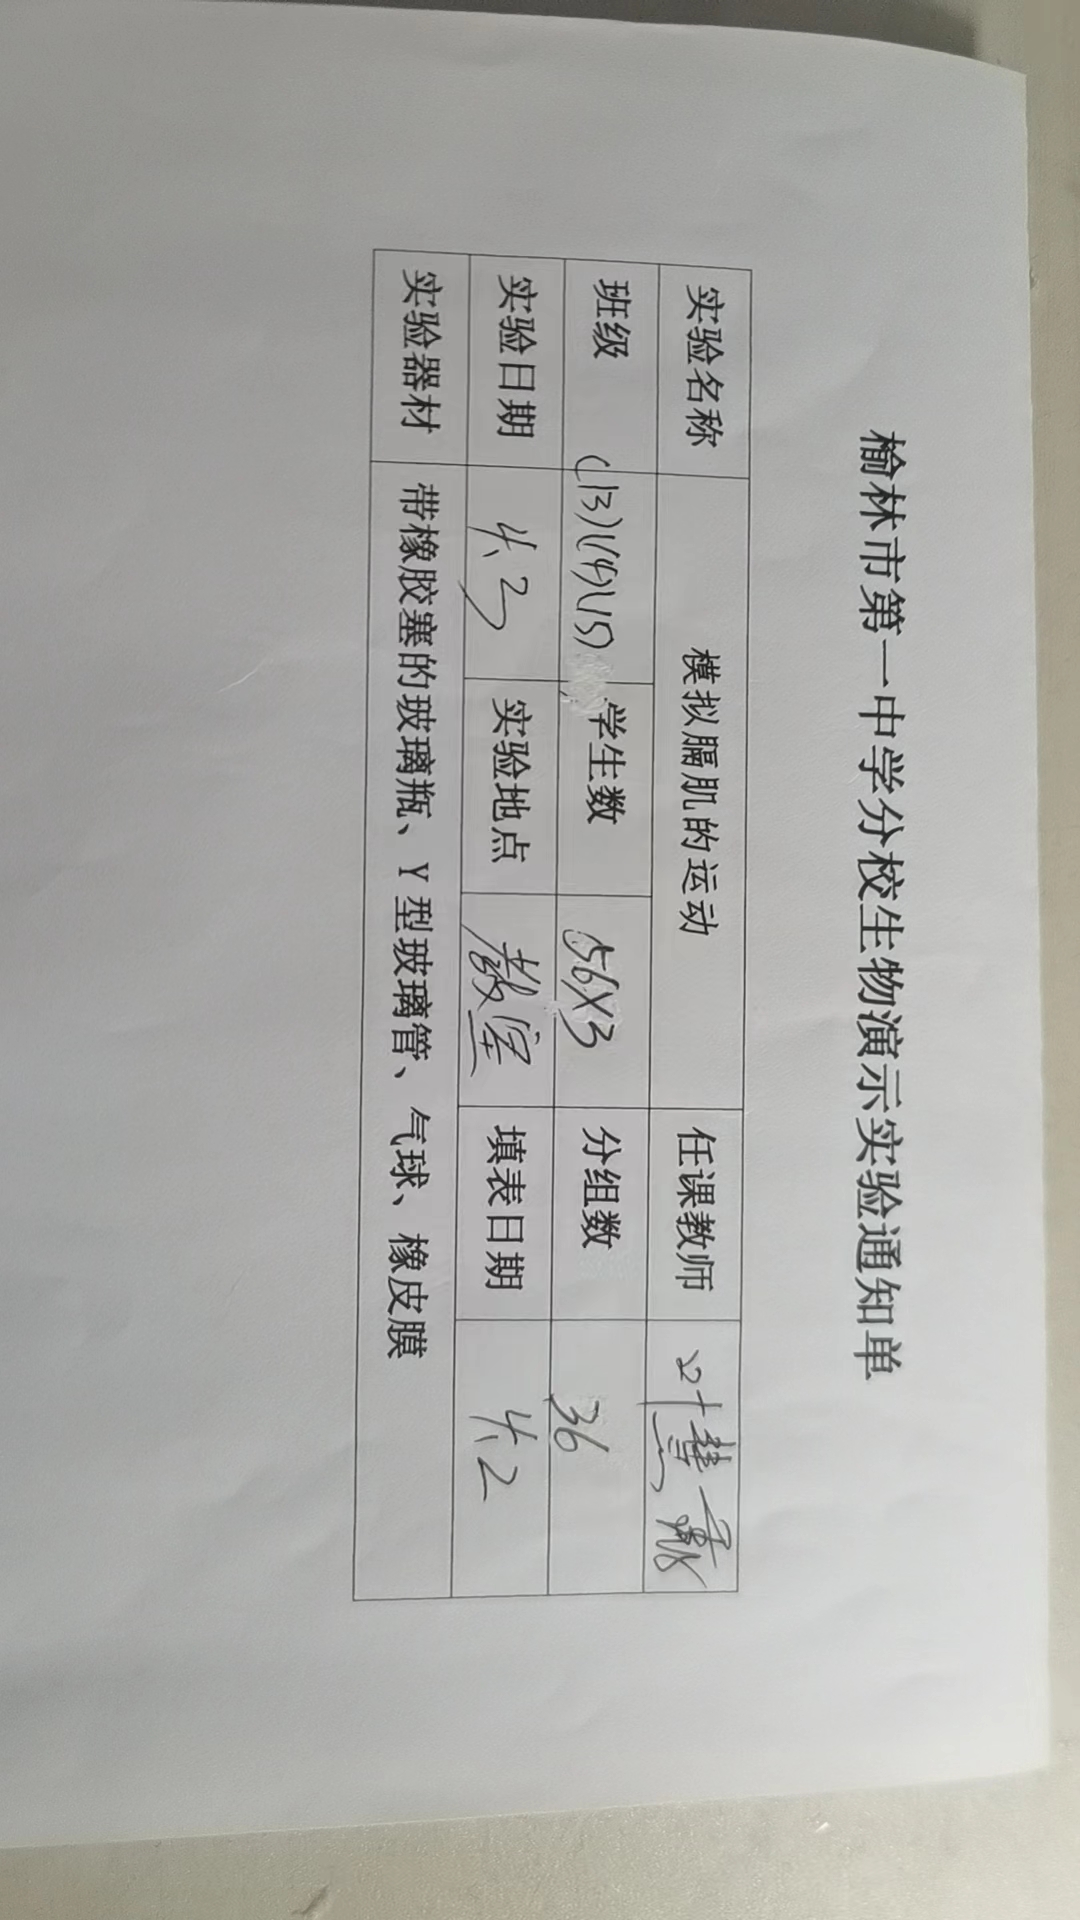 榆林市第一中学分校生物演示实验通知单
实验名称 模拟膈肌的运动 任课教师 叶慧
班级 (13)(14)(15) 学生数 56×3 分组数 36
实验日期 4.3 实验地点 教室 填表日期 4.2
实验器材 带橡胶塞的玻璃瓶、Y型玻璃管、气球、橡皮膜